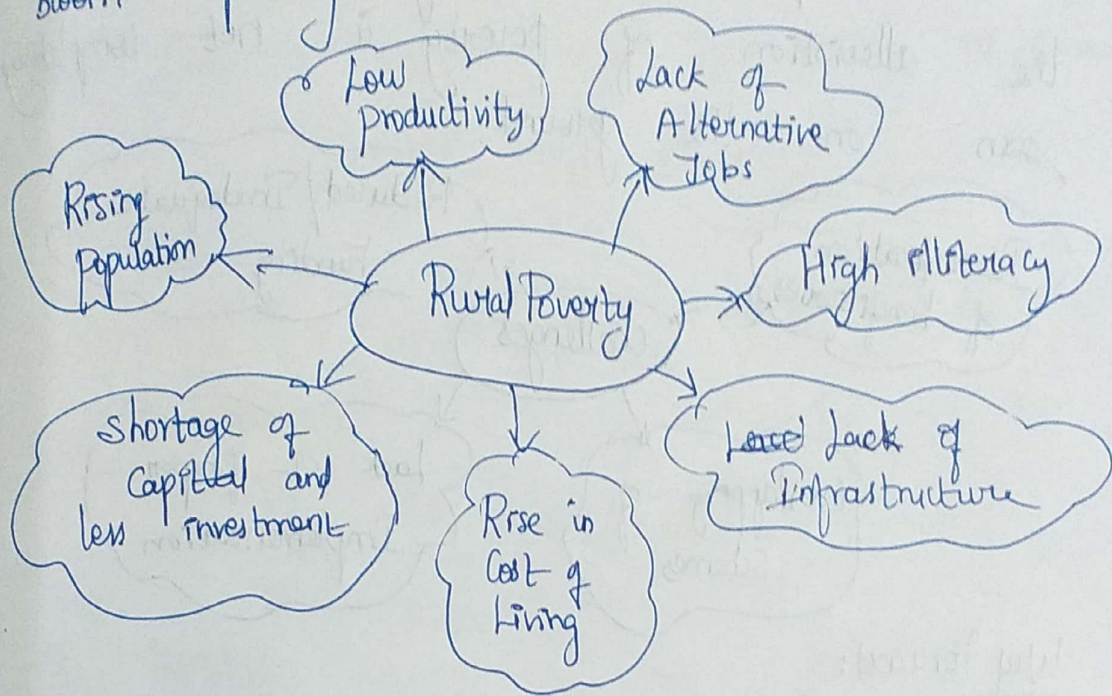 Low
Productivity
Lack of
Alternative
Jobs
Rising
Population
Rural Poverty
High illiteracy
Shortage of
Capital and
less investment
Rise in
Cost of
Living
Lack of
Infrastructure